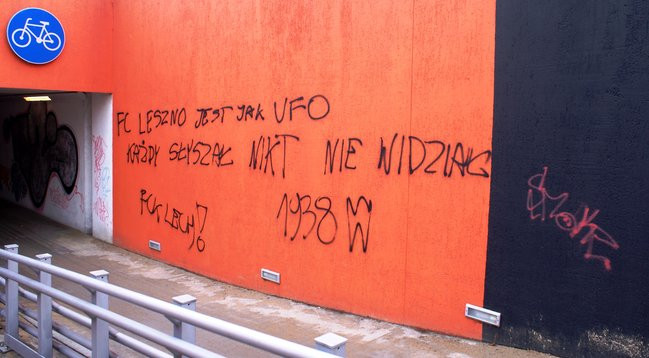 FC LESZNO JEST JAK UFO
KAŻDY SŁYSZAŁ NIKT NIE WIDZIAŁ
FCK LECH! 1938 W